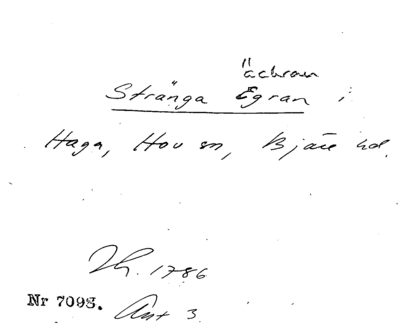 äckran
Stränga Egran i
Haga, Hov sn, Bjäre hd.
Th. 1786
Nr 7098. Ant 3